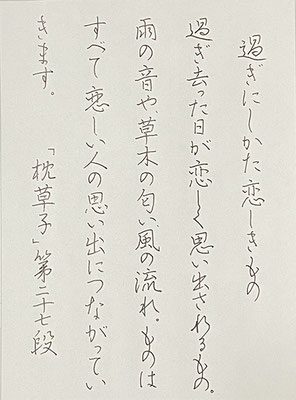 過ぎにしかた恋しきもの
過ぎ去った日が恋しく思い出されるもの。
雨の音や、草木の匂い、風の流れ。ものは
すべて恋しい人の思い出につながってい
きます。
「枕草子」第二十七段